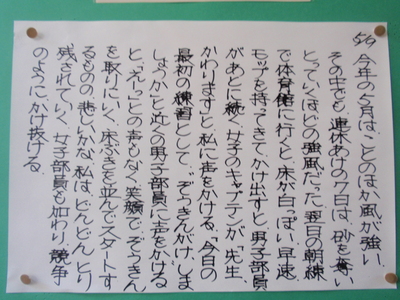 5/9 今年の5月は、ことのほか風が強い。
その中でも、連休あけの7日は、砂を奪い
とっていくほどの強風だった。翌日の朝練
で体育館に行くと、床が白っぽい。早速、
モップを持ってきて、かけ出すと、男子部員
があとに続く。女子のキャプテンが「先生、
かわります」と、私に声をかける。「今日の
最初の練習として、ぞうきんがけ、しま
しょうか」と近くの男子部員に声をかける
と、「えーっ」との声もなく笑顔で、ぞうきん
を取りにいく。床ぶきを並んでスタートす
るものの悲しいかな、私は、どんどん、とり
残されていく。女子部員も加わり、競争
のようにかけ抜ける。